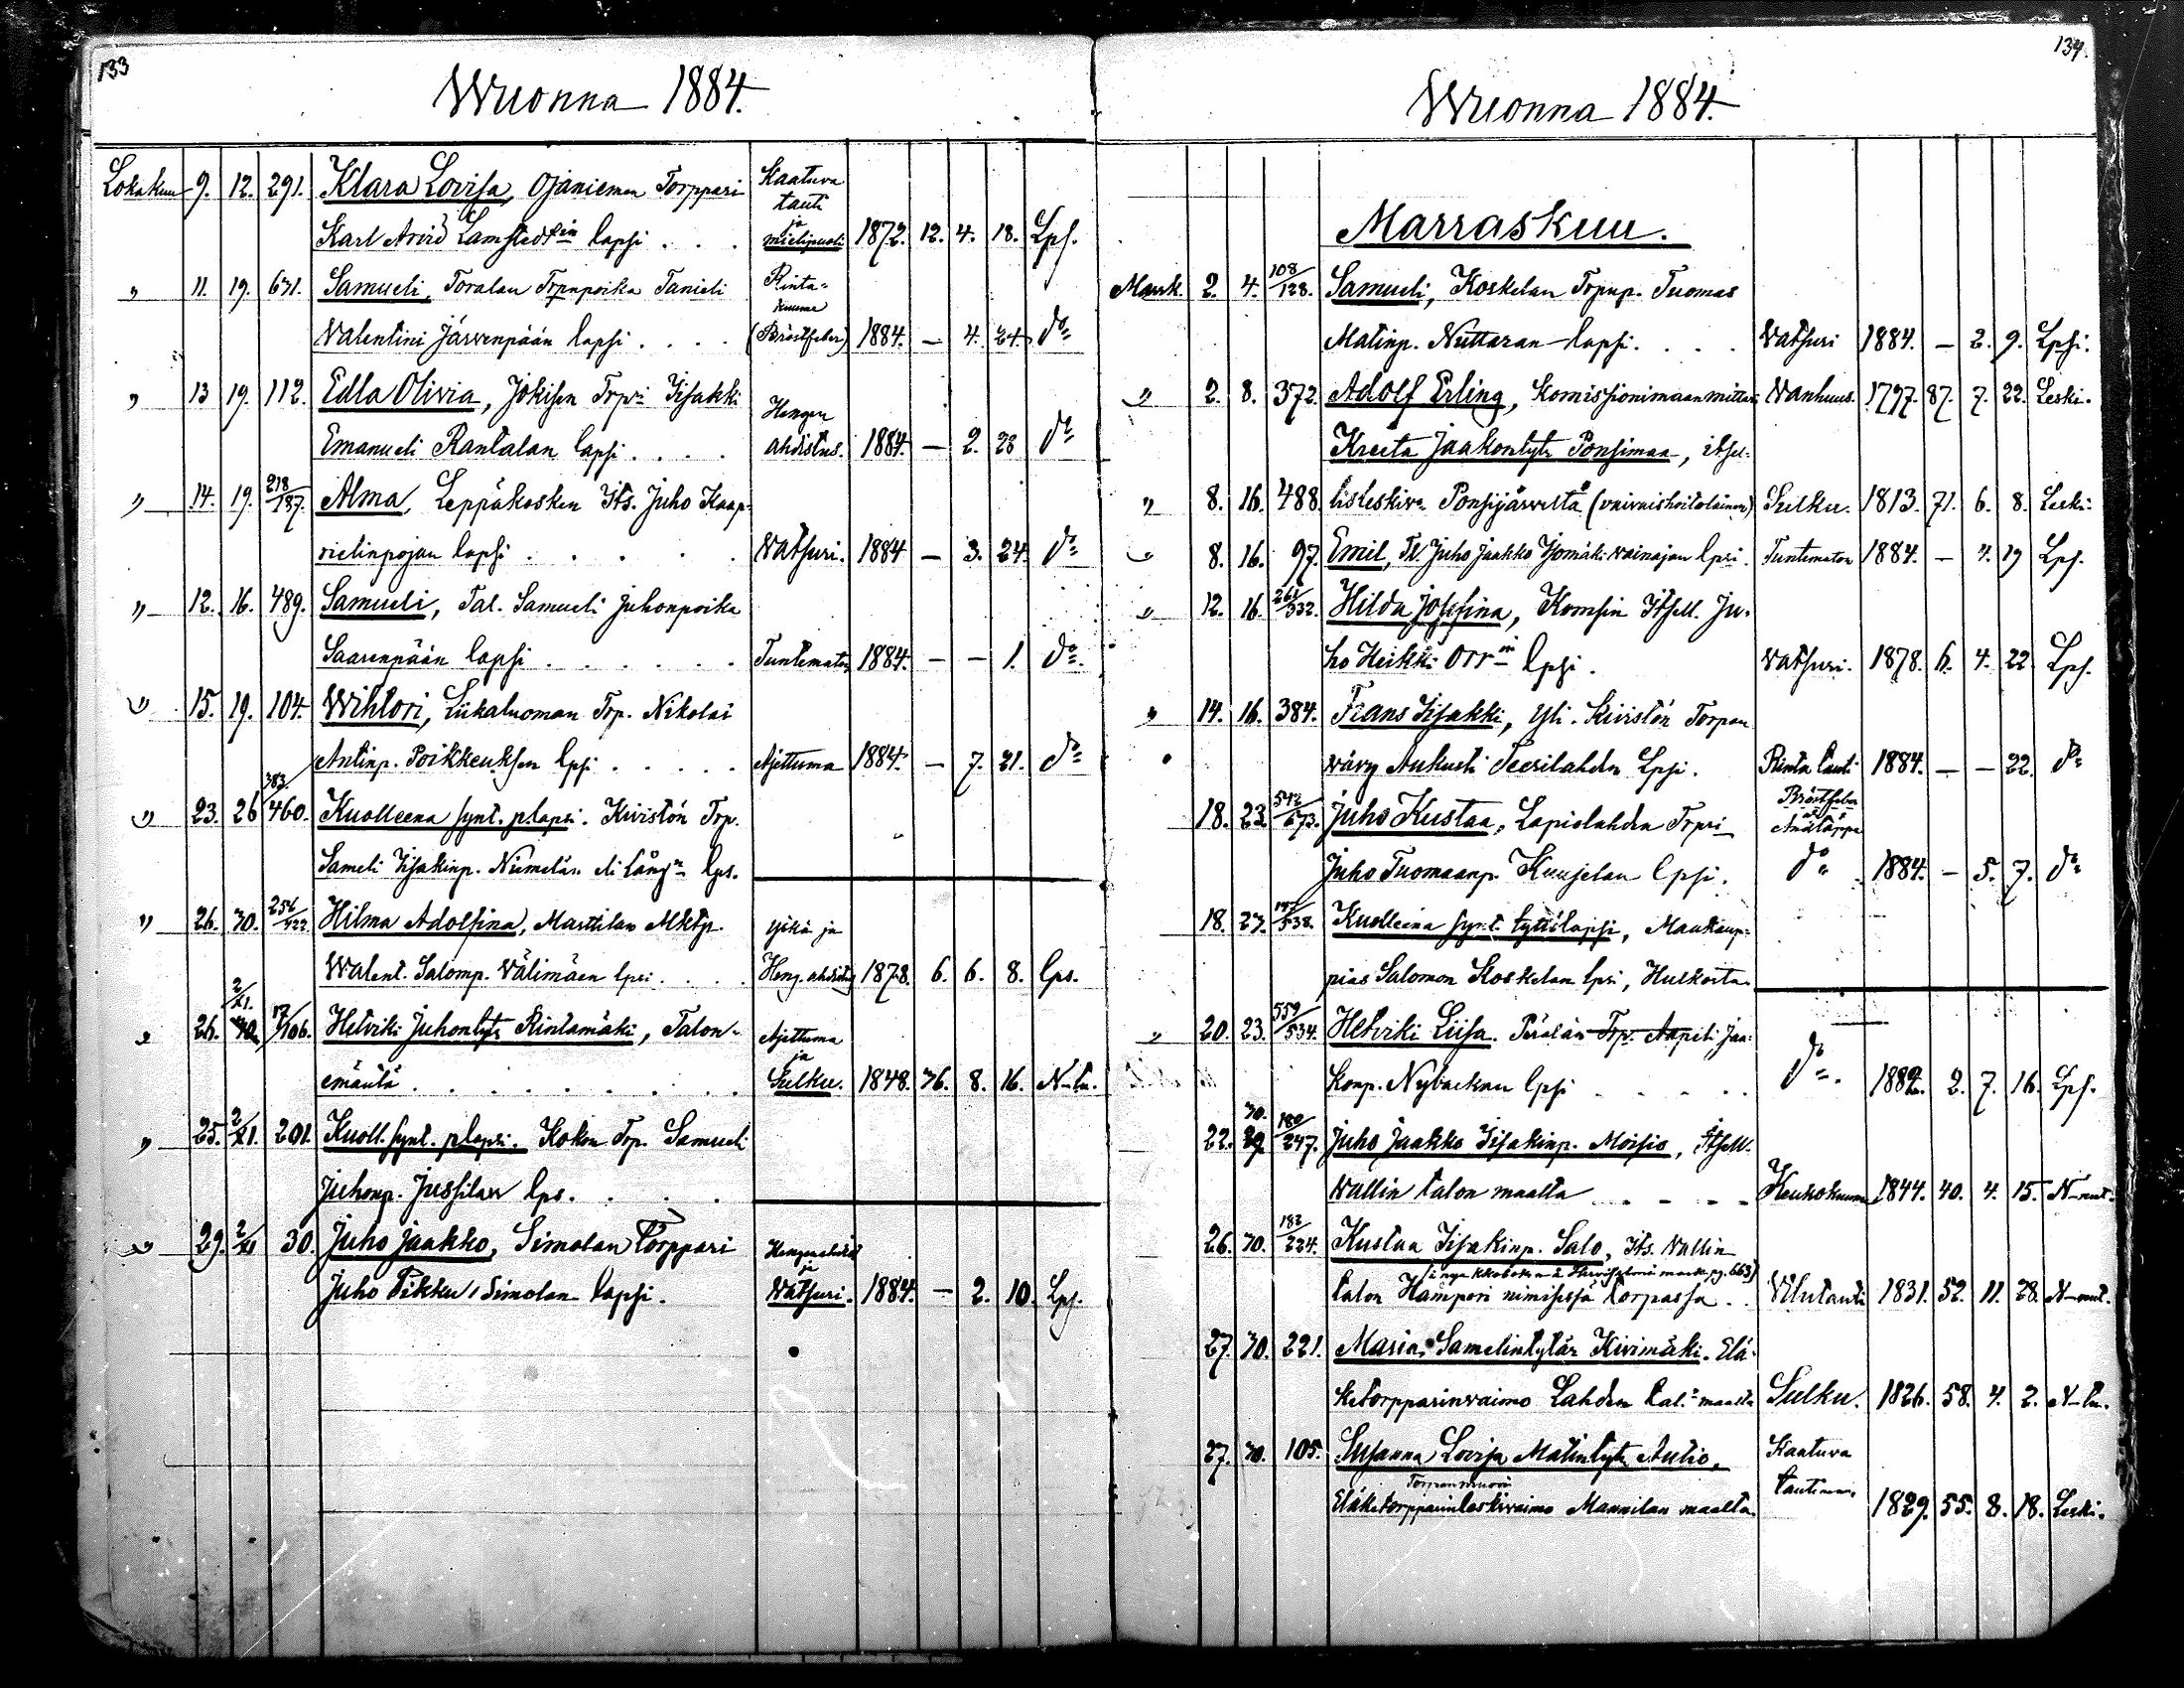 133
Wuonna 1884.
Lokakuu 9. 12. 291. Klara Lovisa, Ojaniemen Torppari Kaatuva tauti
Karl Arvid Lamstedt'in lapsi . . . ja mielipuoli 1872. 12. 4. 18. Lps.
" 11. 19. 631. Samueli, Toralan Trpnpoika Tanieli Rinta-
Valentini Järvenpään lapsi . . . . kuume (Bröstfeber) 1884. — 4. 24. do
" 13 19. 112. Edla Olivia, Jokisen Trpri Iisakki Hengen
Emanueli Rantalan lapsi . . . . ahdistus. 1884. — 2. 28 do
" 14. 19. 218/137. Alma, Leppäkosken Its. Juho Kaap-
rielinpojan lapsi . . . . . Vatsuri. 1884 — 3. 24. do
" 12. 16. 489. Samueli, Tal. Samueli Juhonpoika
Saarenpään lapsi . . . . . . Tuntematon 1884. — — 1. do.
" 15. 19. 104. Wihtori, Liikaluoman Trp. Nikolai
Antinp. Poikkeuksen lpsi . . . . . Ajettuma 1884. — 7. 21. do
" 23. 26 383/460. Kuolleena synt. plapsi. Kiviston Trp.
Sameli Iisakinp. Niemelän eli Lång'n lps.
" 26. 30. 256/422. Hilma Adolfina, Marttilan Mktp. Yskä ja
Walent. Salomp. Välimäen lpsi . . . . Heng. ahdistus 1878. 6. 6. 8. lps.
" 26. 2/XI. 17/106. Hetviki Juhontytr Rintamäki, Talon- Ajettuma
emäntä . . . . . . . . . ja Sulku. 1848. 36. 8. 16. N-tu.
" 25. 2/XI. 201. Kuoll. synt. plapsi. Kokon Trp. Samueli
Juhonp. Jussilan lps. . . . .
" 29. 2/XI 30. Juho Jaakko, Simolan Torppari Hengenahdist
Juho Pikku Simolan lapsi. ja Vatsuri. 1884. — 2. 10. Lps.
134.
Wuonna 1884.
Marraskuu.
Mark. 2. 4. 108/128. Samueli, Koskelan Trpnp. Tuomas
Matinp. Nuttaran lapsi. . . . Vatsuri 1884. — 2. 9. Lpsi.
" 2. 8. 372. Adolf Erling, Komissionimaanmittari Vanhuus. 1797. 87. 7. 22. Leski.
Kreeta Jaakontytr Ponsimaa, itsel-
" 8. 16. 488. lisleskivo Ponsijärveltä (vaivaishoitolainen) Sulku. 1813. 71. 6. 8. Leski.
" 8. 16. 97. Emil, Tl. Juho Jaakko Yjomäki vainajan lpsi. Tuntematon 1884. — 4. 19 Lps.
" 12. 16. 261/332. Hilda Josefina, Komsin Itsell. Ju-
ho Heikki Orr'in lpsi. Vatsuri. 1878. 6. 4. 22. Lps.
" 14. 16. 384. Frans Iisakki, Yli-Kivistön Torpan
vävy Aukusti Teerilahden Lpsi. Rinta tauti 1884. — — 22. do
18. 23. 542/673. Juho Kustaa, Lapiolahden Trpri Bröstfeber
Juho Tuomaanp. Kuujelan lpsi. do 1884. — 5. 7. do
18. 23. 538. Kuolleena synt. tyttölapsi, Maakaup-
pias Salomon Koskelan lpsi, Hulkosta
" 20. 23. 559/534. Hetviki Liisa. Perälän Trp. Aapeli Jaa-
konp. Nybackan lpsi . . . . . do. 1882. 2. 7. 16. Lps.
22. 30. 180/247. Juho Jaakko Iisakinp. Moisio, Itsell.
Wallin talon maalta . . . . Keuhokuume 1844. 40. 4. 15. N-mut.
26. 30. 182/224. Kustaa Iisakinp. Salo, Its. Wallin
talon Hampori nimisessä torpassa . . Vilutauti 1831. 52. 11. 28. N-mut.
27. 30. 221. Maria Samelintytär Kivimäki. Elä-
ketorpparinvaimo Lahden tal. maalta Sulku. 1826. 58. 4. 2. N-tu.
27. 30. 105. Susanna Lovisa Matintytr Aulio, Kaatuva
Eläketorpparinleskivaimo Mannilan maalta. 1829. 55. 8. 18. Leski.